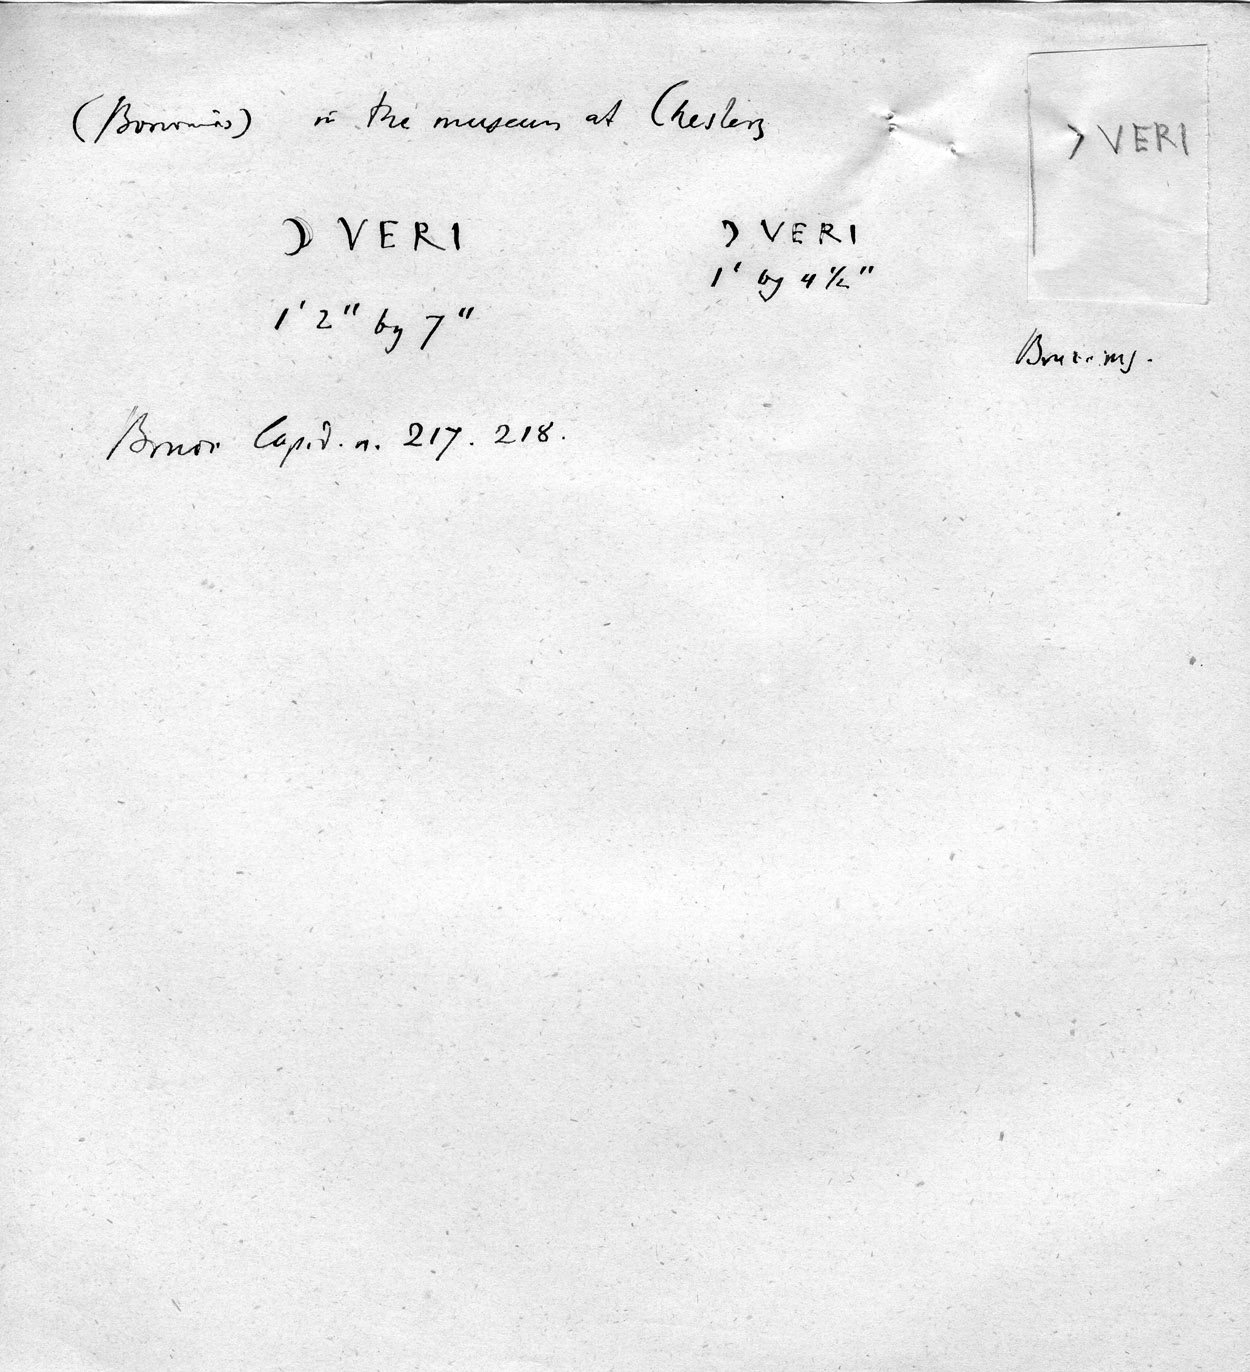 in the museum at Chesters
Ɔ VERI
1' 2" by 7"
Ɔ VERI
1' by 4 ½"
> VERI
Lapid. n. 217. 218.